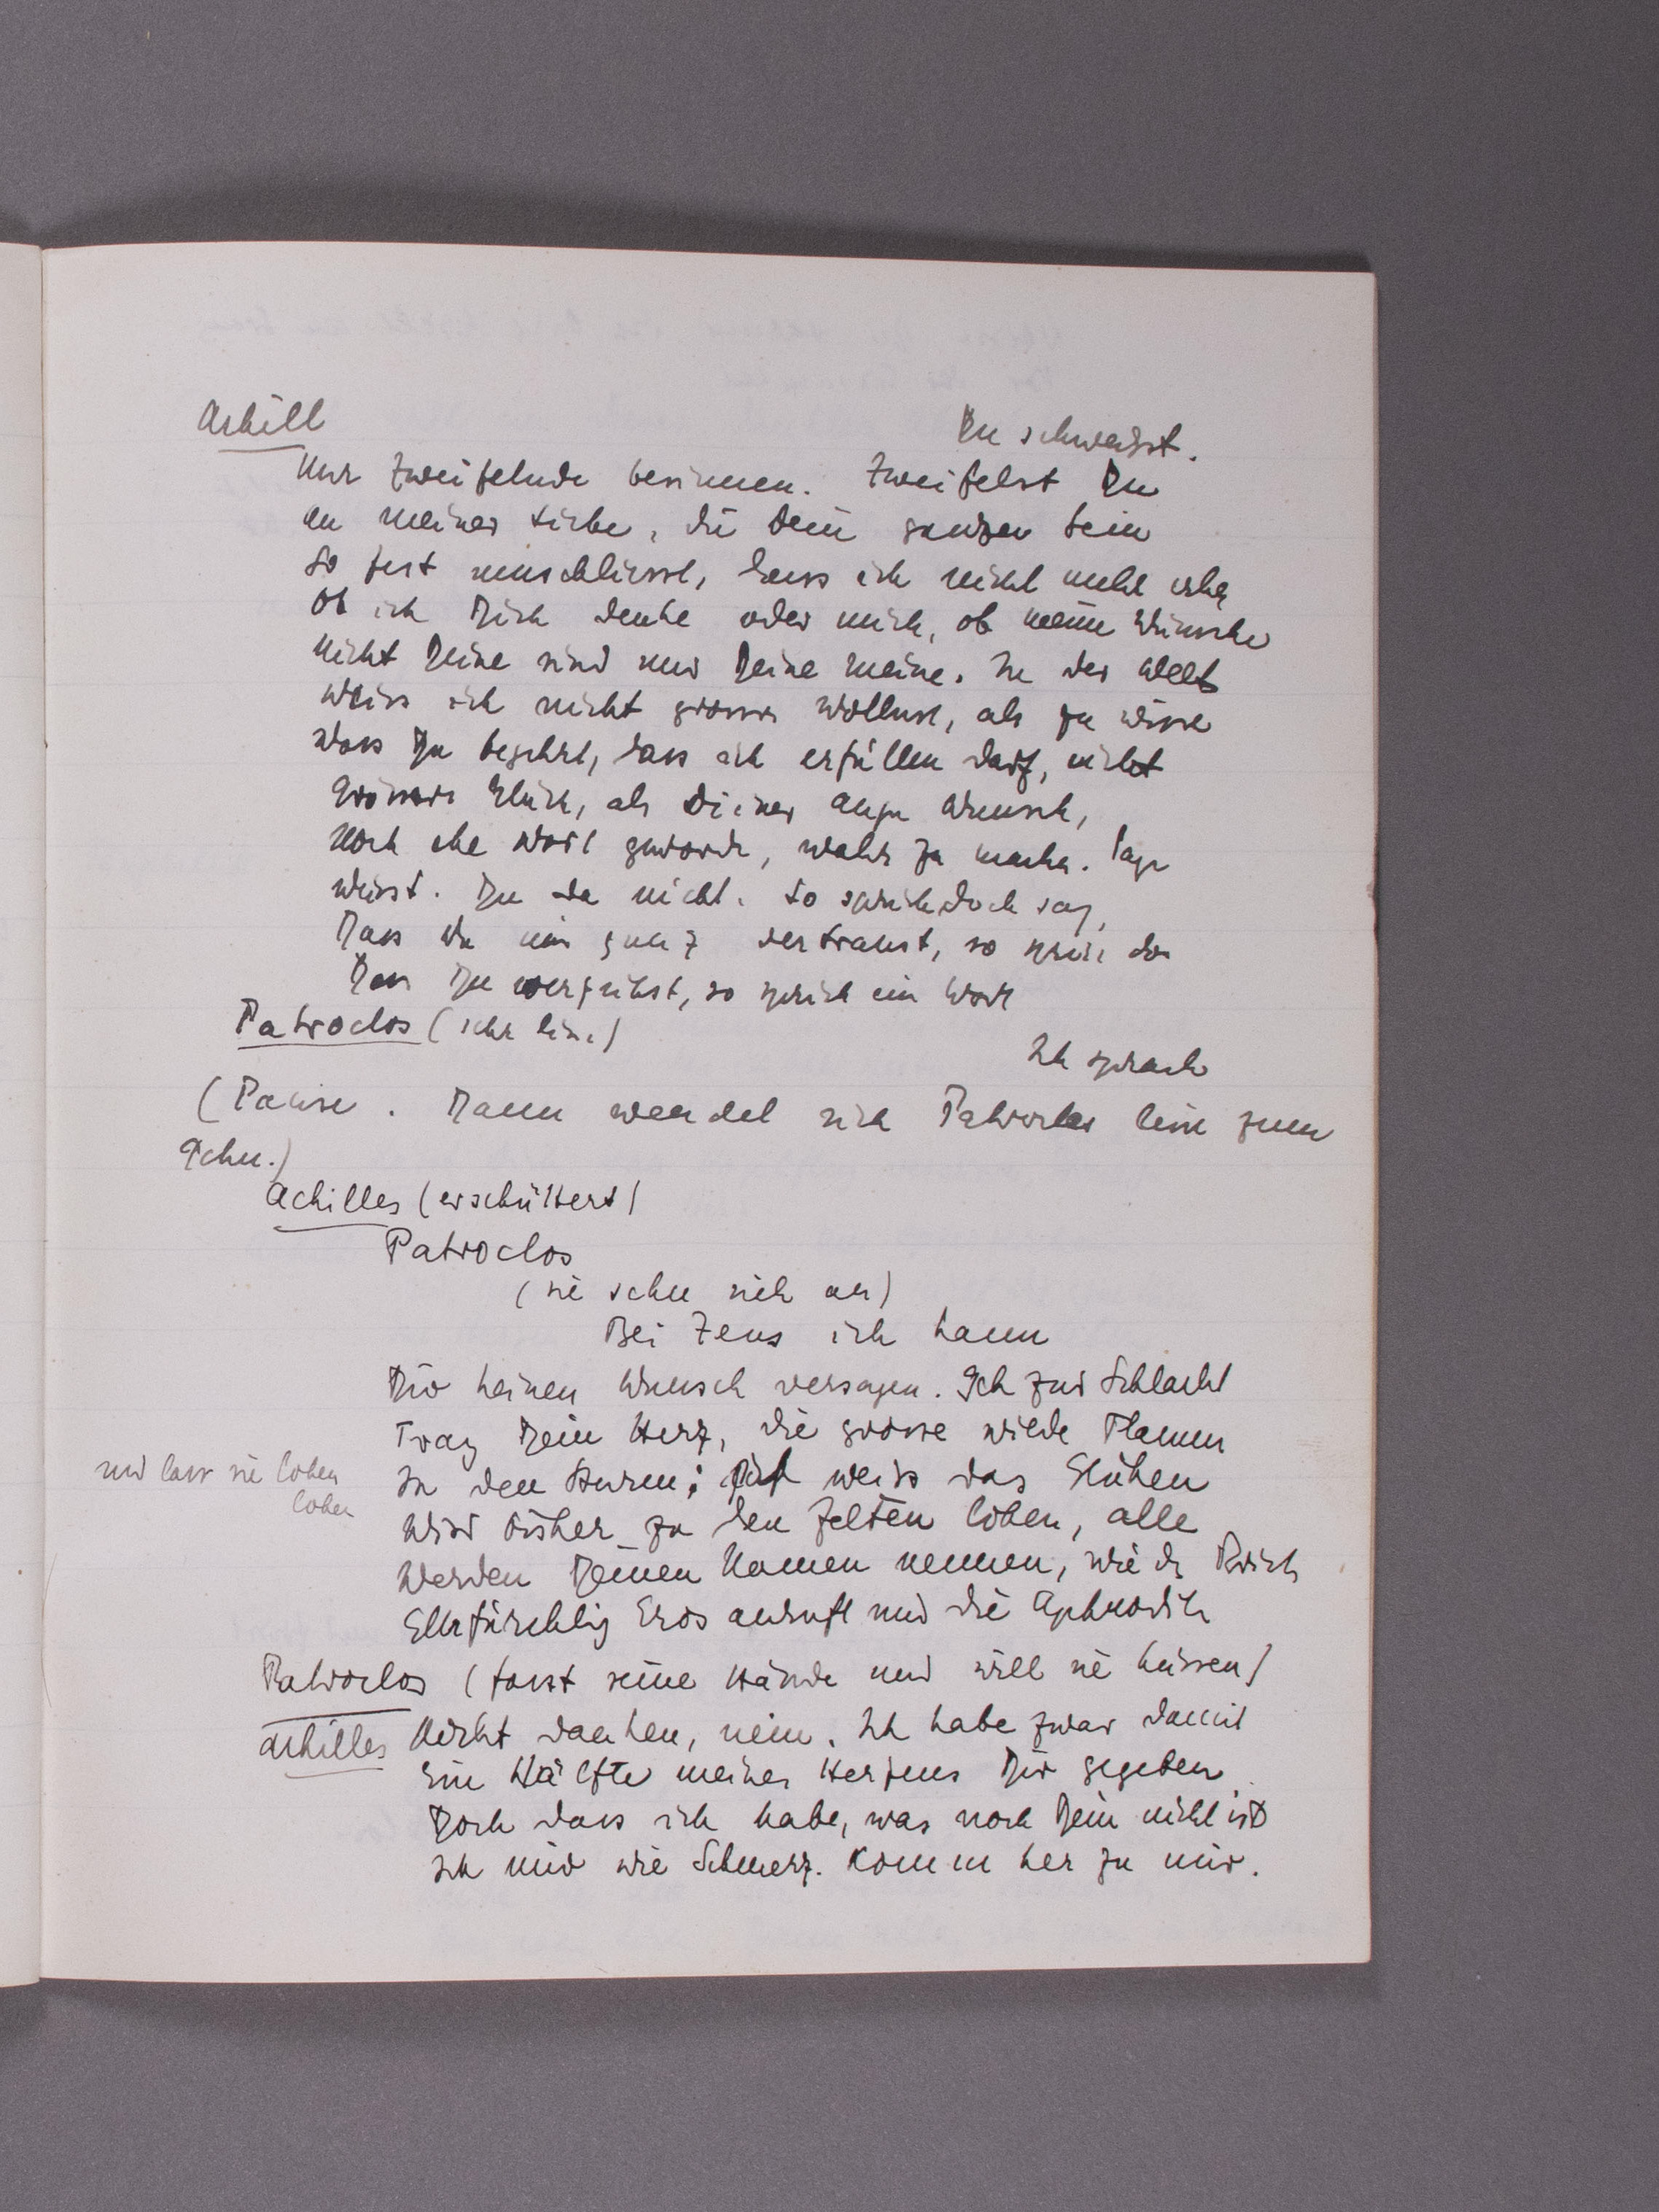 Achill
Du schweigst.
Nur Zweifelnde besinnen. Zweifelst Du
an meiner Liebe, die Dein ganzes Sein
So fest umschliesst, dass ich nicht mehr
Ob ich Dich denke oder mich, ob meine Wünsche
Nicht Deine sind und Deine meine. In der Welt
Weiss ich nicht grössre Wollust, als zu wissen
Was Du begehrst, dass ich erfüllen darf, nicht
Grössres Glück, als Deiner Augen Wunsch,
Noch ehe Wort geworden, wahr zu machen. Sage
Weisst Du da nicht. So sprich doch sag,
Dass Du mir ganz vertraust, so sprich doch
Dass Du vergibst, so sprich ein Wort
Patroclos (sehr leise)
Ich sprach
(Pause. Dann wendet sich Patroclos leise zum
Gehn.)
Achilles (erschüttert)
Patroclos
(sie sehn sich an)
Bei Zeus ich kann
Dir keinen Wunsch versagen. Geh zur Schlacht
Trag Dein Herz, die grosse wilde Flamme
und lass sie lohen
lohen
In den Sturm; weiss das Glühen
Wird bisher zu den Zelten lohen, alle
Werden Deinen Namen nennen, wie der
Ehrfürchtig Eros anruft und die Aphrodite
Patroclos (fasst seine Hände und will sie küssen)
Achilles Nicht danken, nein. Ich habe zwar damit
Die Hälfte meines Herzens Dir gegeben
Doch dass ich habe, was noch Dein nicht ist
Ist mir wie Schmerz. Komm her zu mir.